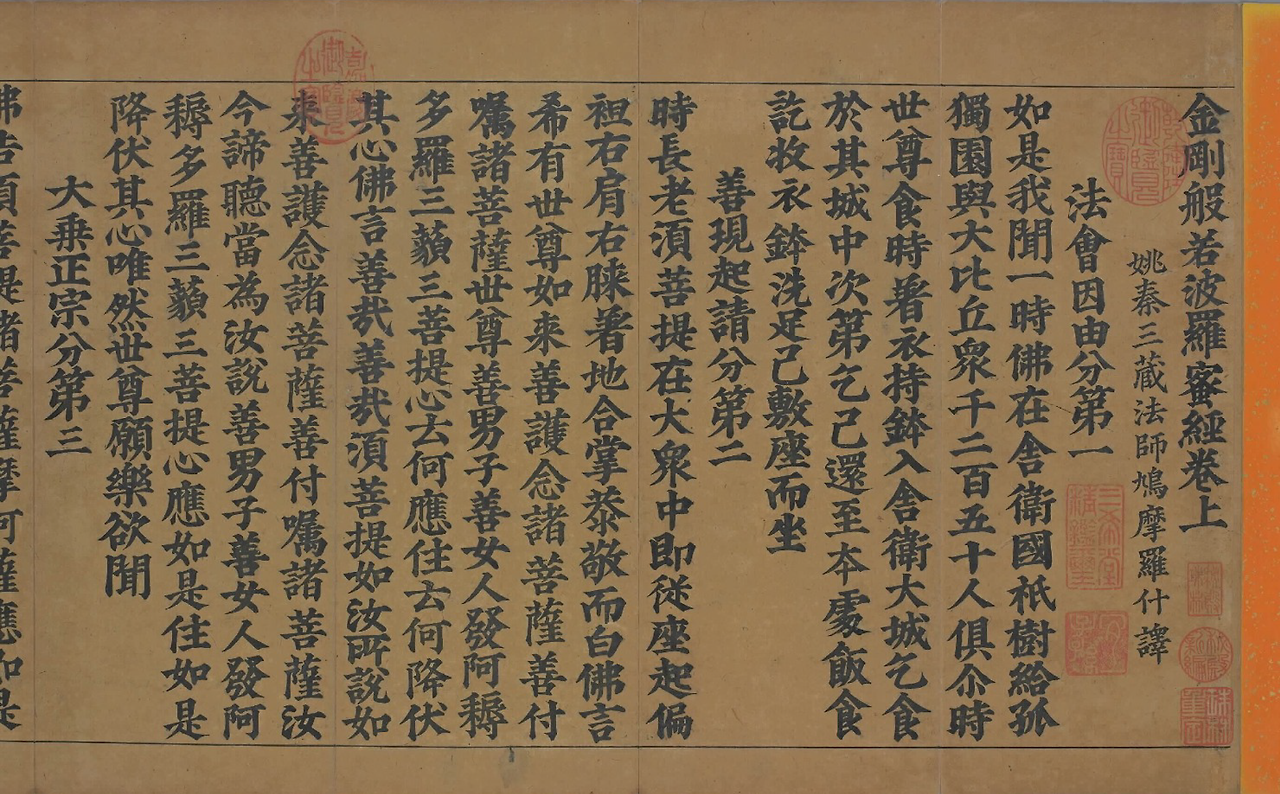 金剛般若波羅蜜經卷上
姚秦三藏法師鳩摩羅什譯
法會因由分第一
如是我聞一時佛在舎衛國祇樹給孤
獨園與大比丘衆千二百五十人俱尒時
世尊食時著衣持鉢入舎衛大城乞食
於其城中次第乞已還至本處飯食
訖收衣鉢洗足已敷座而坐
善現起請分第二
時長老湏菩提在大衆中即從座起偏
袒右肩右膝著地合掌恭敬而白佛言
希有世尊如來善護念諸菩薩善付
囑諸菩薩世尊善男子善女人發阿耨
多羅三藐三菩提心云何應住云何降伏
其心佛言善㢤善㢤湏菩提如汝所說如
來善護念諸菩薩善付囑諸菩薩汝
今諦聽當為汝說善男子善女人發阿
耨多羅三藐三菩提心應如是住如是
降伏其心唯然世尊願樂欲聞
大乗正宗分第三
佛告湏菩提諸菩薩摩訶薩應如是
乾隆御覽之寶
三希堂精鑑璽
宜子孫